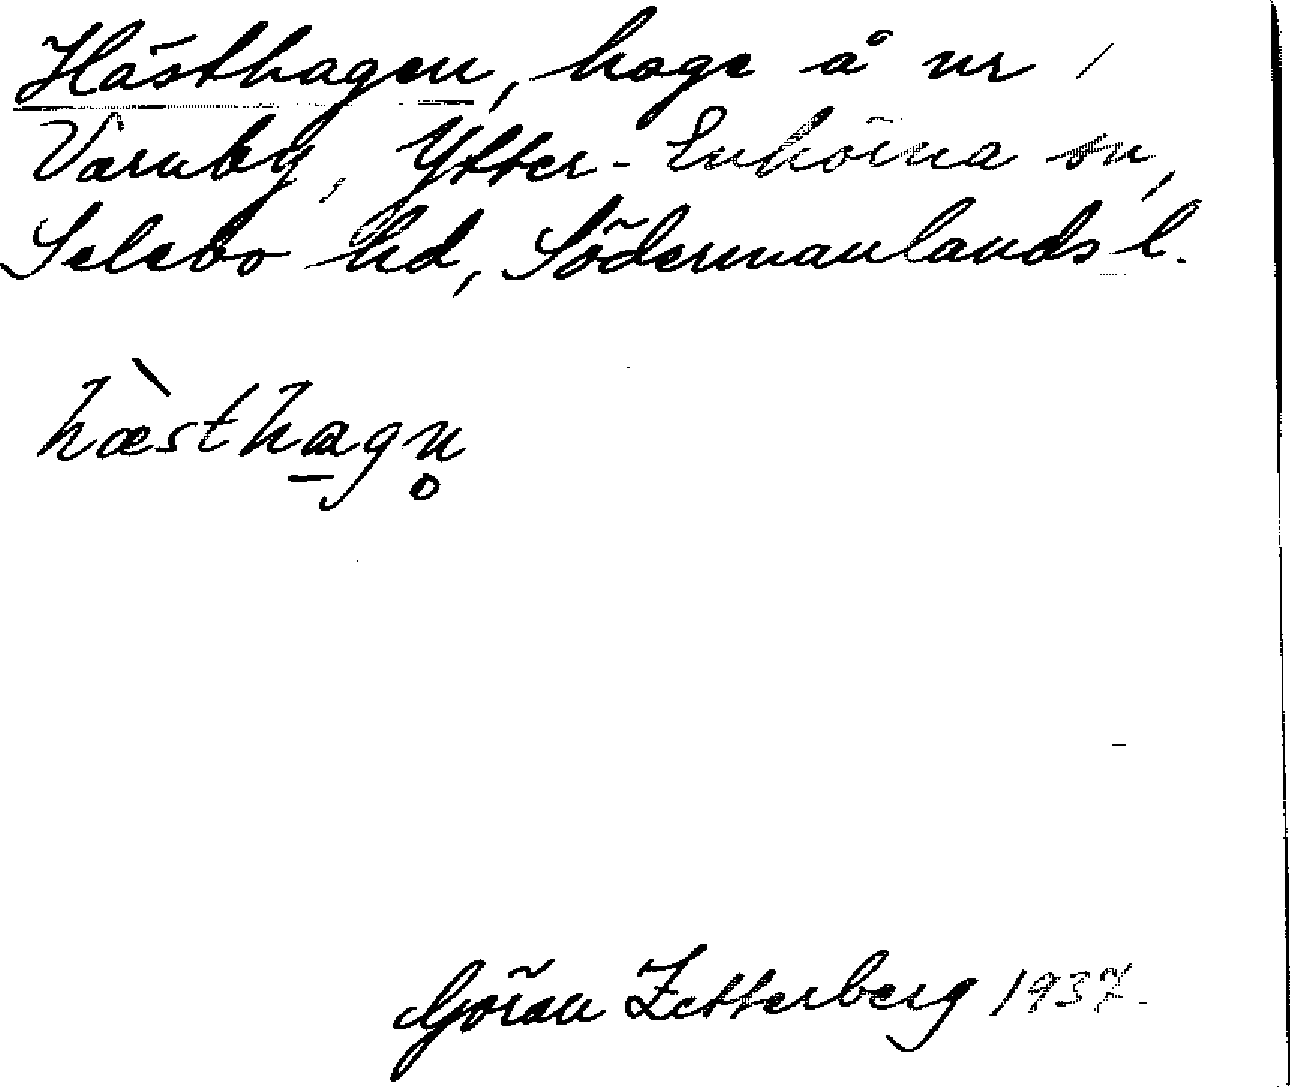 Hästhagen, hage å nr 1
Varnby, Ytter-Enhörna sn,
Selebo hd, Södermanlands l.
hæ̀stha̲gn̥
Göran Zetterberg 1937.